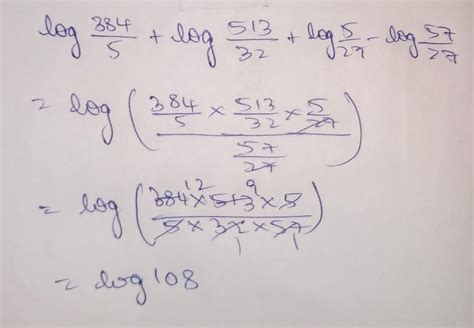 log 384/5 + log 513/32 + log 5/27 - log 57/27
= log ( (384/5 × 513/32 × 5/27) / (57/27) )
= log ( (384 12 × 513 9 × 5) / (5 × 32 1 × 57 1) )
= log 108